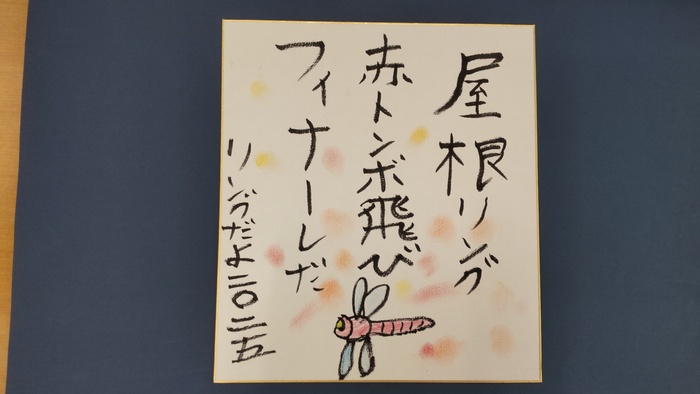 屋根リング
赤トンボ飛び
フィナーレだ
リングだよ二〇二五